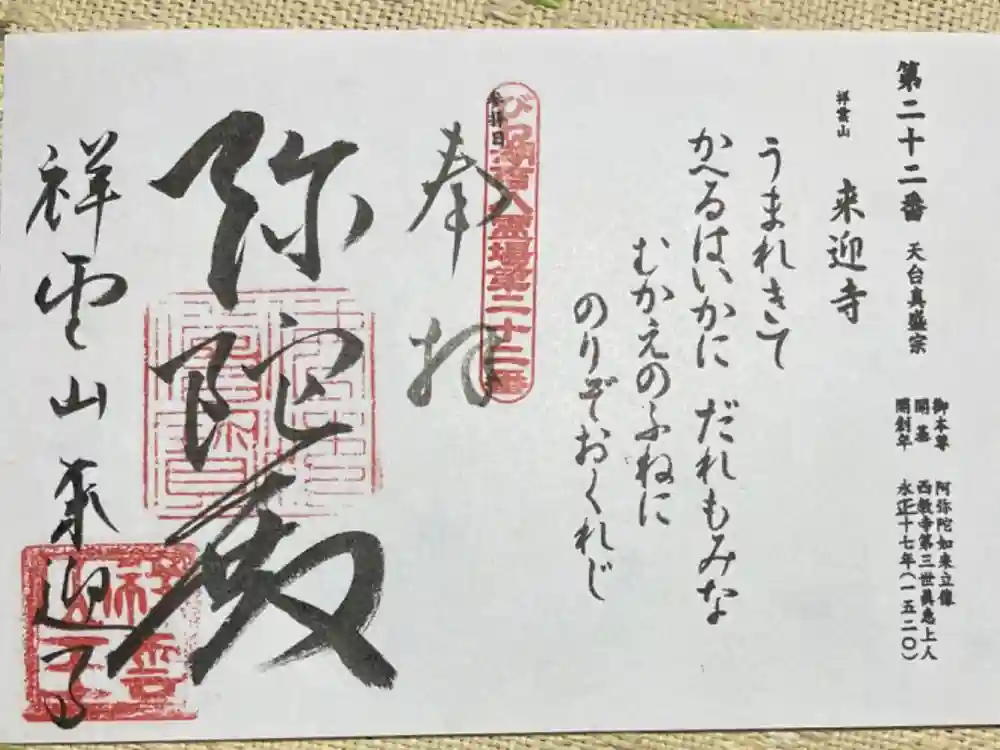 第二十二番 天台真盛宗
御本尊 阿弥陀如来立像
開基 西教寺第三世真恵上人
開創年 永正十七年(一五二〇)
祥雲山 来迎寺
うまれきて
かへるはいかに だれもみな
むかえのふねに
のりぞおくれじ
参拝日
びわ湖百八霊場第二十二番
奉拝
弥陀殿
祥雲山来迎寺